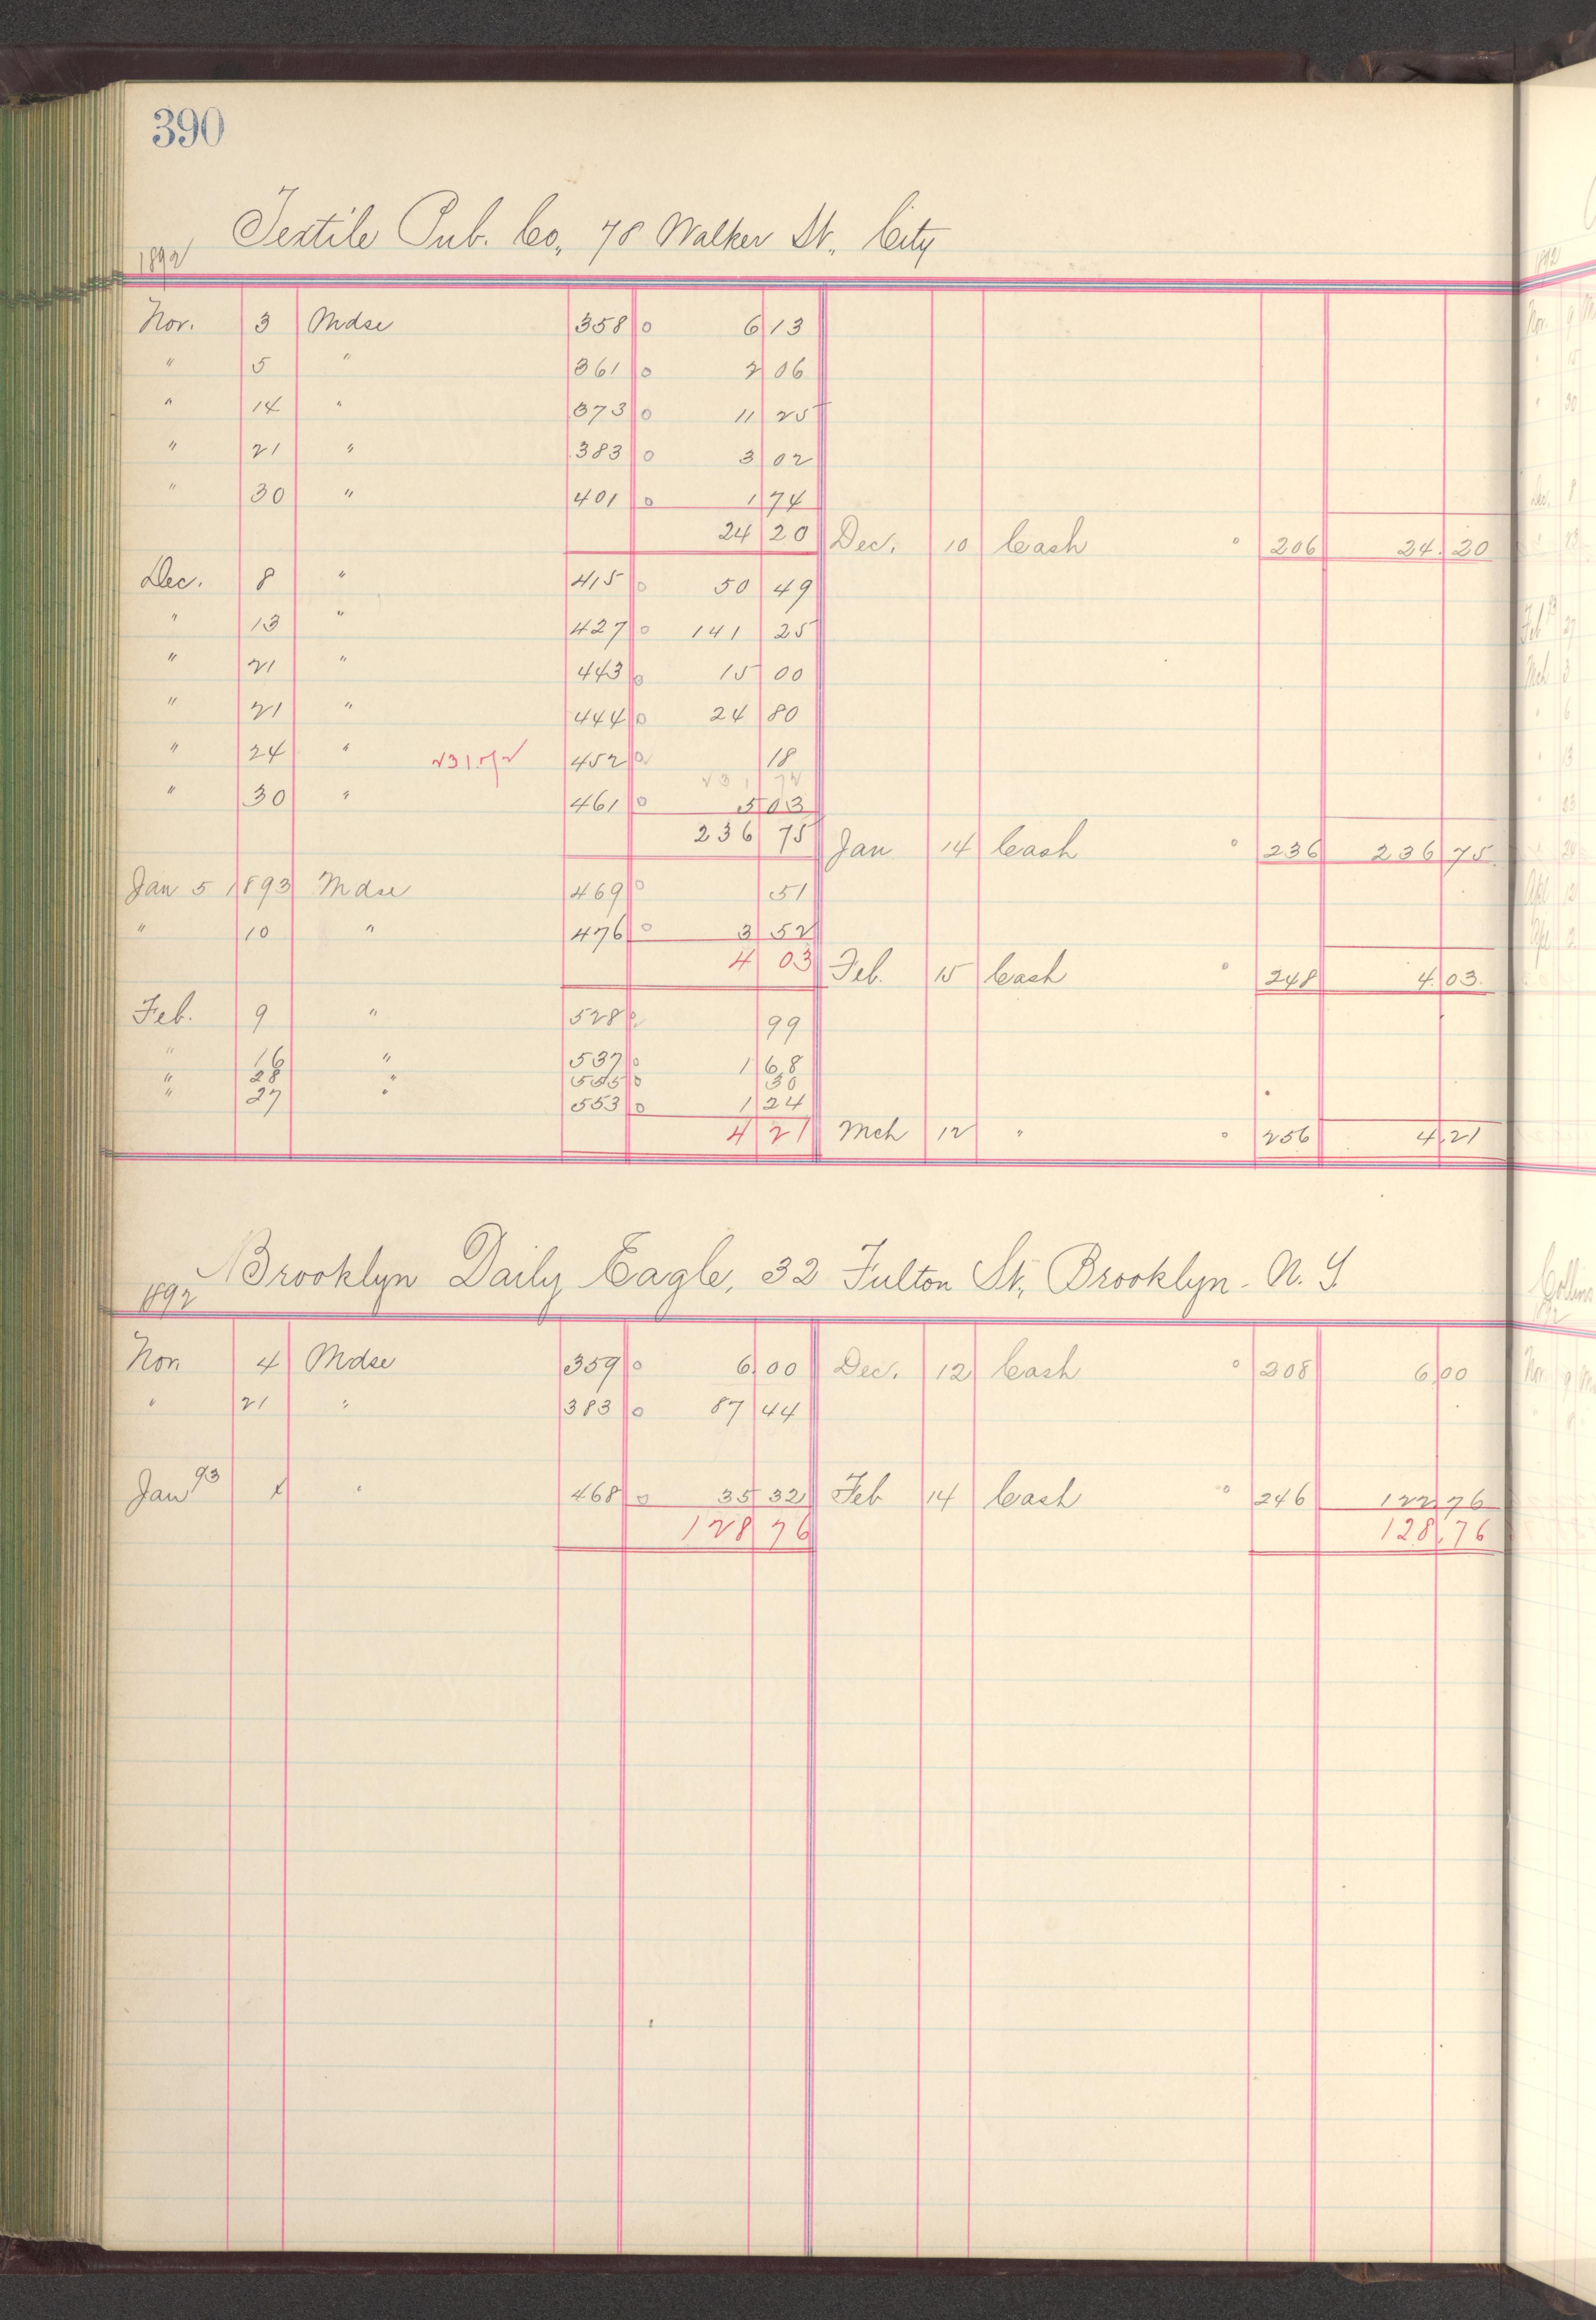 390
Textile Pub. Co., 78 Walker St., City
1892
Nov. 3 Mdse 358 0 6 13
" 5 " 361 0 2 06
" 14 " 373 0 11 25
" 21 " 383 0 3 02
" 30 " 401 0 1 74
24 20 Dec. 10 Cash 0 206 24.20
Dec. 8 " 415 0 50 49
" 13 " 427 0 141 25
" 21 " 443 0 15 00
" 21 " 444 0 24 80
" 24 " 231.72 452 0 18
231 72
" 30 " 461 0 5 03
236 75 Jan 14 Cash 0 236 236 75
Jan 5 1893 Mdse 469 0 51
" 10 " 476 0 3 52
4 03 Feb. 15 Cash 0 248 4.03
Feb. 9 " 528 0 99
" 16 " 537 0 1 68
" 28 " 555 0 30
" 27 " 553 0 1 24
4 21 Mch 12 " 0 256 4.21
Brooklyn Daily Eagle, 32 Fulton St., Brooklyn. N. Y
1892
Nov 4 Mdse 359 0 6.00 Dec. 12 Cash 0 208 6.00
" 21 " 383 0 87 44
Jan 93 4 " 468 0 35 32 Feb 14 Cash 0 246 122 76
128 76 128.76